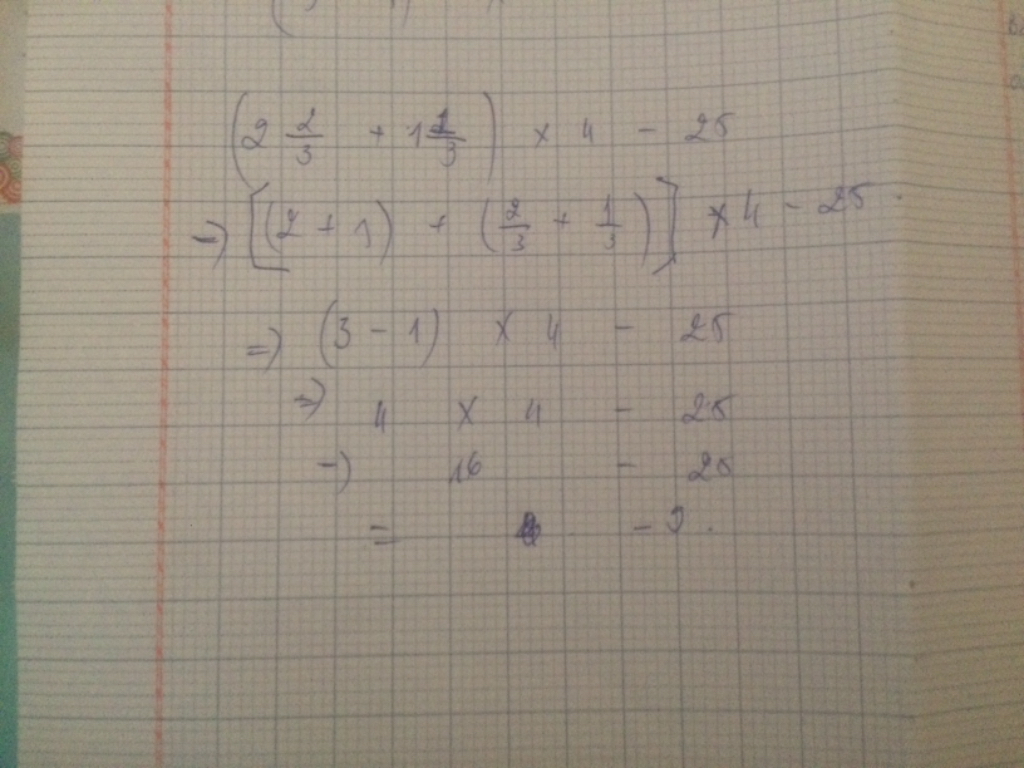 (2 2/3 + 1 1/3) × 4 - 25
=) [(2 + 1) + (2/3 + 1/3)] × 4 - 25.
=) (3 - 1) × 4 - 25
=) 4 × 4 - 25
-) 16 - 25
= - 9.